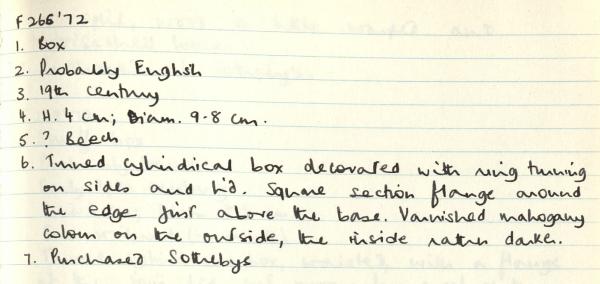 F266'72
1. Box
2. Probably English
3. 19th century
4. H. 4 cm; Diam. 9.8 cm.
5. ? Beech
6. Turned cylindrical box decorated with ring turning
on sides and lid. Square section flange around
the edge just above the base. Varnished mahogany
colour on the outside, the inside rather darker.
7. Purchased Sothebys